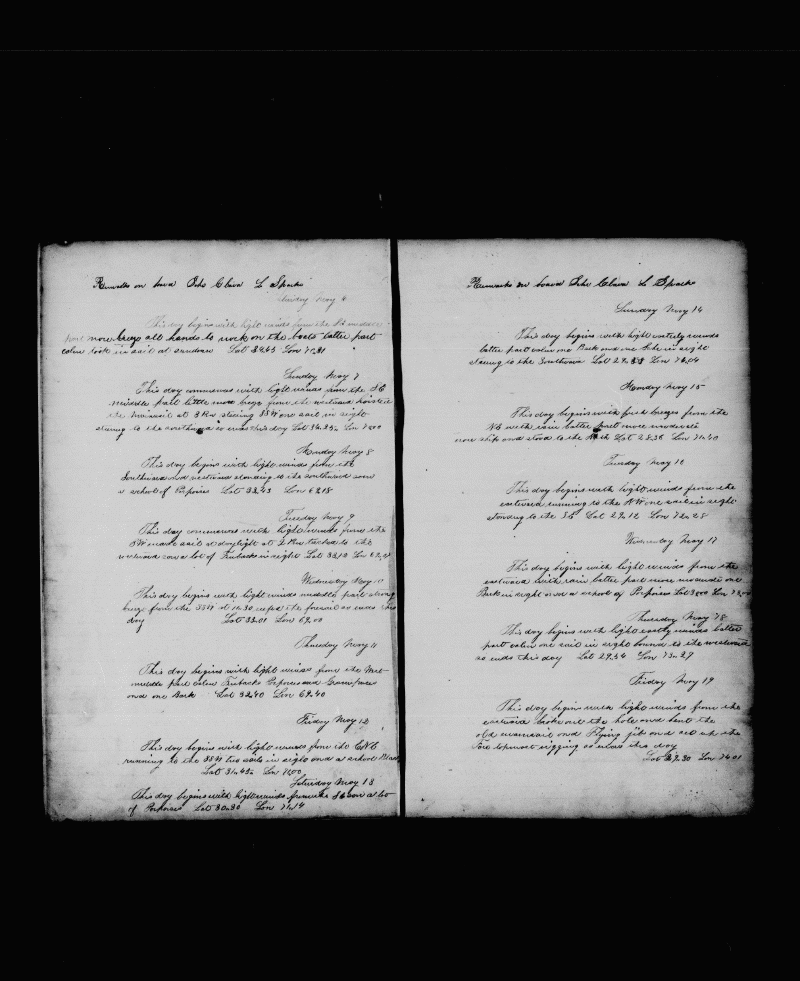 Remarks on board Schr Clara L Sparks
Friday May 6
This day begins with light winds from the NE middle
part more breeze all hands to work on the boats latter part
calm took in sail at sundown Lat 34.43 Lon 71.31
Sunday May 7
This day commences with light winds from the SE
middle part little more breeze from the westward hoisted
the mainsail at 3 P.m steering SSW one sail in sight
steering to the northward so ends this day Lat 34.23 Lon 70.00
Monday May 8
This day begins with light winds from the
Southward and westward standing to the southward saw
a school of Porpoises Lat 33.43 Lon 69.18
Tuesday May 9
This day commences with light winds from the
SW made sail at daylight at 2 P.m tacked to the
westward saw a lot of Finbacks in sight Lat 33.12 Lon
Wednesday May 10
This day begins with light winds middle part strong
breeze from the SSW at 10.30 reefed the foresail so ends this
day Lat 33.01 Lon 69.00
Thursday May 11
This day begins with light winds from the West
middle part calm Finbacks
and one Bark Lat 32.40 Lon 69.40
Friday May 12
This day begins with light winds from the ENE
running to the SSW two sails in sight and a school
Lat 31.43 Lon 70.00
Saturday May 13
This day begins with light winds from the SE saw a lot
of Porpoises Lat 30.30 Lon 71.14
Remarks on board Schr Clara L Sparks
Sunday May 14
This day begins with light westerly winds
latter part calm one Bark and one Schr in sight
steering to the Southward Lat 29.38 Lon 71.04
Monday May 15
This day begins with fresh breezes from the
NE with rain latter part more moderate
wore ship and stood to the North Lat 28.36 Lon 71.40
Tuesday May 16
This day begins with light winds from the
eastward running to the NW one sail in sight
standing to the SE Lat 29.12 Lon 72.28
Wednesday May 17
This day begins with light winds from the
eastward with rain latter part more moderate one
Bark in sight and a school of Porpoises Lat 30.00 Lon
Thursday May 18
This day begins with light easterly winds latter
part calm one sail in sight bound to the westward
so ends this day Lat 29.34 Lon 73.27
Friday May 19
This day begins with light winds from the
eastward broke out the hole and bent the
old mainsail and Flying jib and set up the
Fore topmast rigging so ends this day
Lat 29.30 Lon 74.01